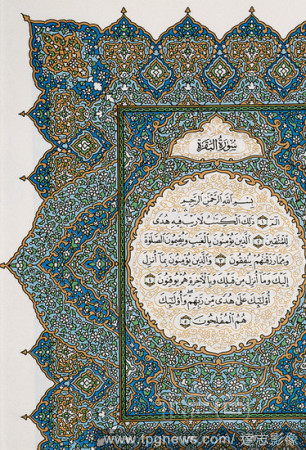 سورة البقرة
بسم الله الرحمن الرحيم
الم ١ ذلك الكتاب لا ريب فيه هدى
للمتقين ٢ الذين يؤمنون بالغيب ويقيمون الصلوة
ومما رزقنهم ينفقون ٣ والذين يؤمنون بما أنزل
إليك وما أنزل من قبلك وبالآخرة هم يوقنون ٤
أولئك على هدى من ربهم وأولئك
هم المفلحون ٥
www.tpgnews.com/ 达志影像